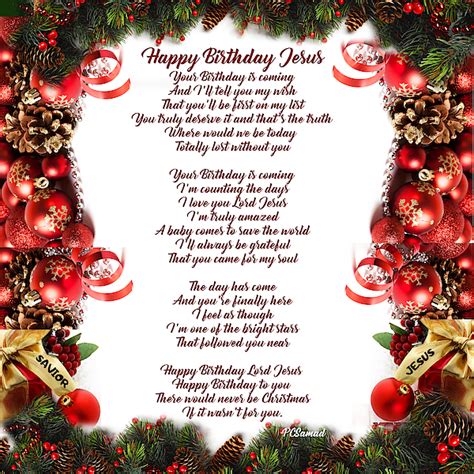 Happy Birthday Jesus
Your Birthday is coming
And I'll tell you my wish
That you'll be first on my list
You truly deserve it and that's the truth
Where would we be today
Totally lost without you
Your Birthday is coming
I'm counting the days
I love you Lord Jesus
I'm truly amazed
A baby comes to save the world
I'll always be grateful
That you came for my soul
The day has come
And you're finally here
I feel as though
I'm one of the bright stars
That followed you near
Happy Birthday Lord Jesus
Happy Birthday to you
There would never be Christmas
If it wasn't for you.
SAVIOR
JESUS
PCSamad